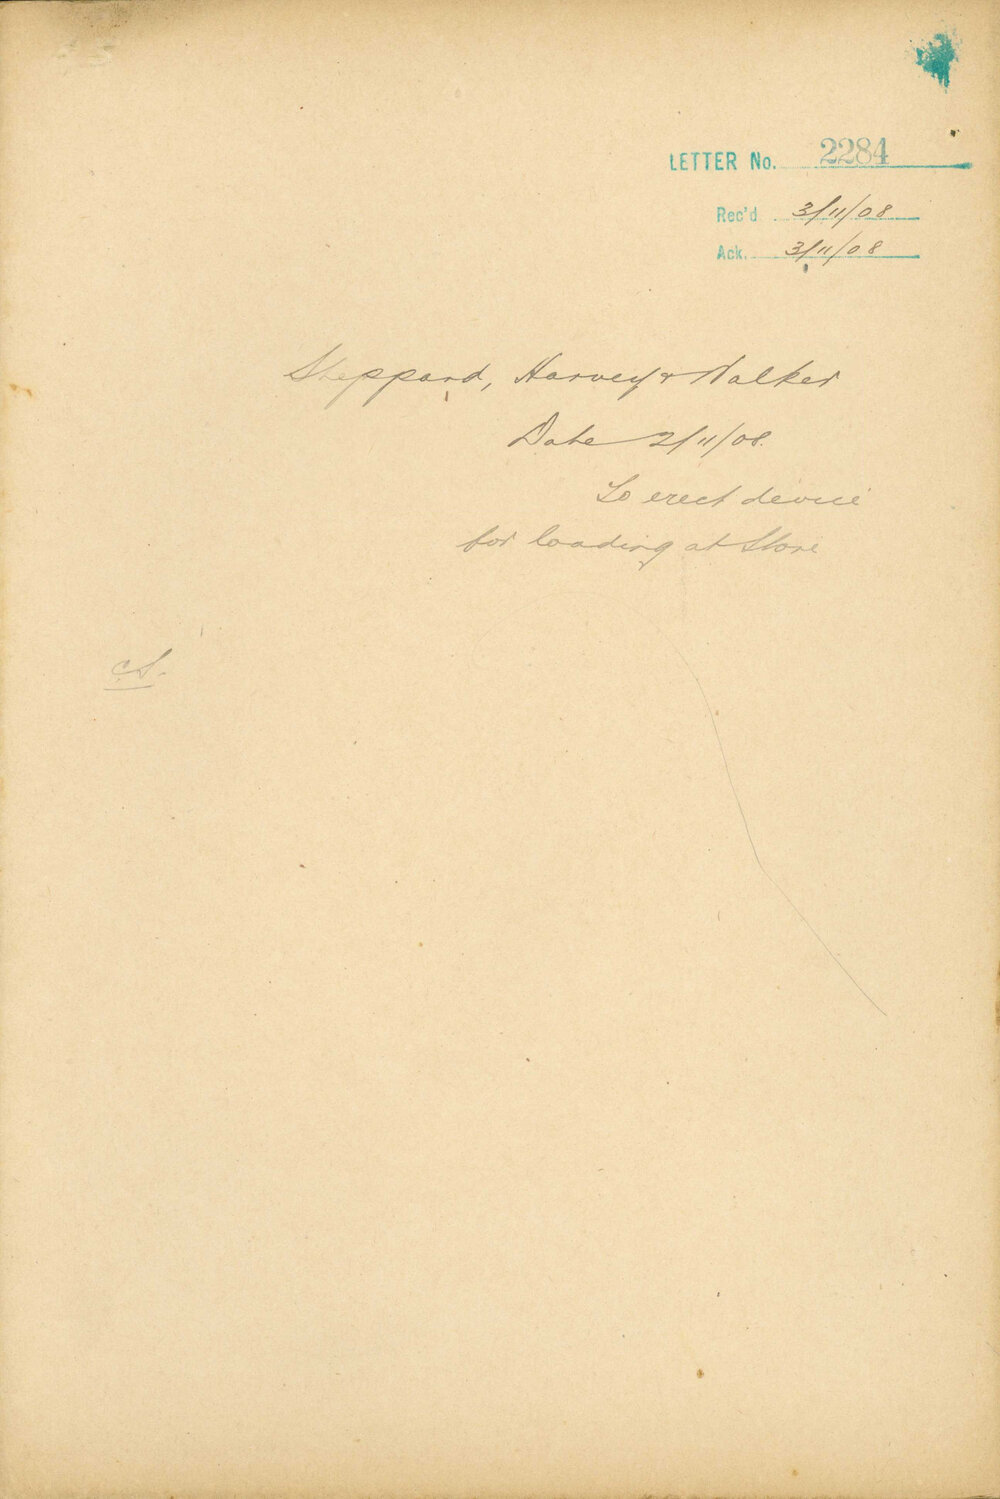 LETTER No. 2284
Rec'd 3/11/08
Ack. 3/11/08
Sheppard, Harvey & Walker
Date 2/11/08.
To erect device
for loading at Store
C.S.